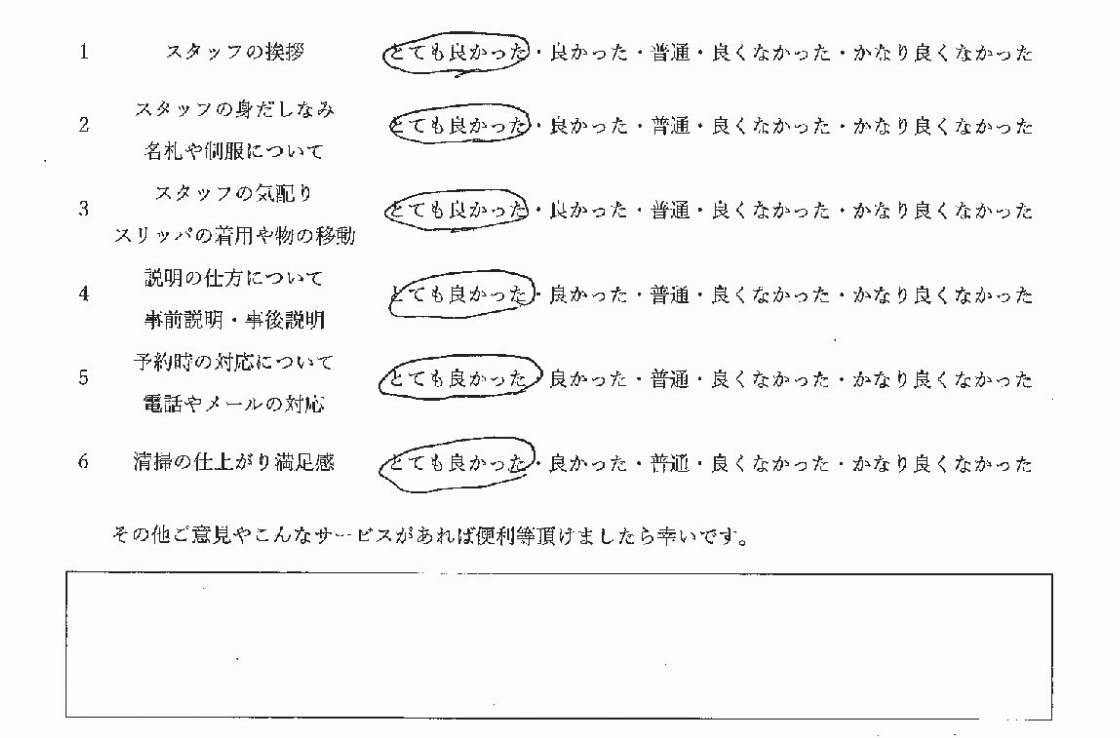 1 スタッフの挨拶 とても良かった・良かった・普通・良くなかった・かなり良くなかった
2 スタッフの身だしなみ 名札や制服について とても良かった・良かった・普通・良くなかった・かなり良くなかった
3 スタッフの気配り スリッパの着用や物の移動 とても良かった・良かった・普通・良くなかった・かなり良くなかった
4 説明の仕方について 事前説明・事後説明 とても良かった・良かった・普通・良くなかった・かなり良くなかった
5 予約時の対応について 電話やメールの対応 とても良かった・良かった・普通・良くなかった・かなり良くなかった
6 清掃の仕上がり満足感 とても良かった・良かった・普通・良くなかった・かなり良くなかった
その他ご意見やこんなサービスがあれば便利等頂けましたら幸いです。